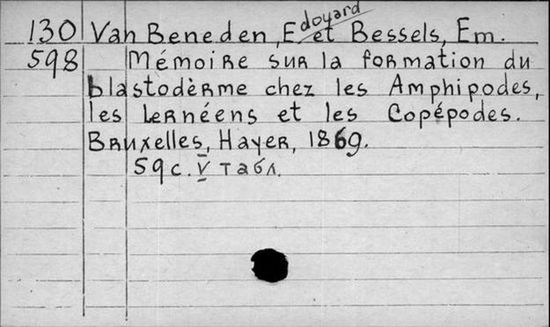 130 Van Beneden, Edouard et Bessels, Em.
598 Mémoire sur la formation du
blastodèrme chez les Amphipodes,
les Lernéens et les Copépodes.
Bruxelles, Hayer, 1869.
59 с. V табл.